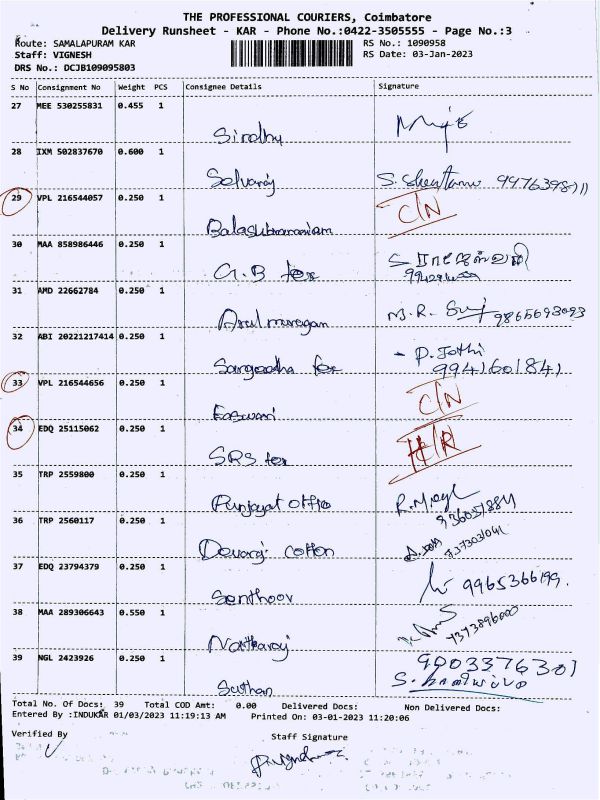 THE PROFESSIONAL COURIERS, Coimbatore
Delivery Runsheet - KAR - Phone No.:0422-3505555 - Page No.:3
Route: SAMALAPURAM KAR
RS No.: 1090958
Staff: VIGNESH
RS Date: 03-Jan-2023
DRS No.: DCJB109095803
S No Consignment No Weight PCS Consignee Details Signature
27 MEE 530255831 0.455 1
Sindhu
28 IXM 502837670 0.600 1
Selvaraj
29 VPL 216544057 0.250 1 C/N
Balasubramaniam
30 MAA 858986446 0.250 1
G.B tex
31 AMD 22662784 0.250 1
Arul murugan M.R. 9865693093
32 ABI 20221217414 0.250 1
Sangeetha tex P. Jothi
9941601841
33 VPL 216544656 0.250 1 C/N
Easwari
34 EDQ 25115062 0.250 1 H/R
SRS tex
35 TRP 2559800 0.250 1
Punjayat office
36 TRP 2560117 0.250 1
Devaraj cotton
37 EDQ 23794379 0.250 1
Senthoor 9965366199.
38 MAA 289306643 0.550 1
Natharaj 7373896000
39 NGL 2423926 0.250 1 9003376301
Suthan
Total No. Of Docs: 39 Total COD Amt: 0.00 Delivered Docs: Non Delivered Docs:
Entered By :INDUKAR 01/03/2023 11:19:13 AM Printed On: 03-01-2023 11:20:06
Verified By Staff Signature